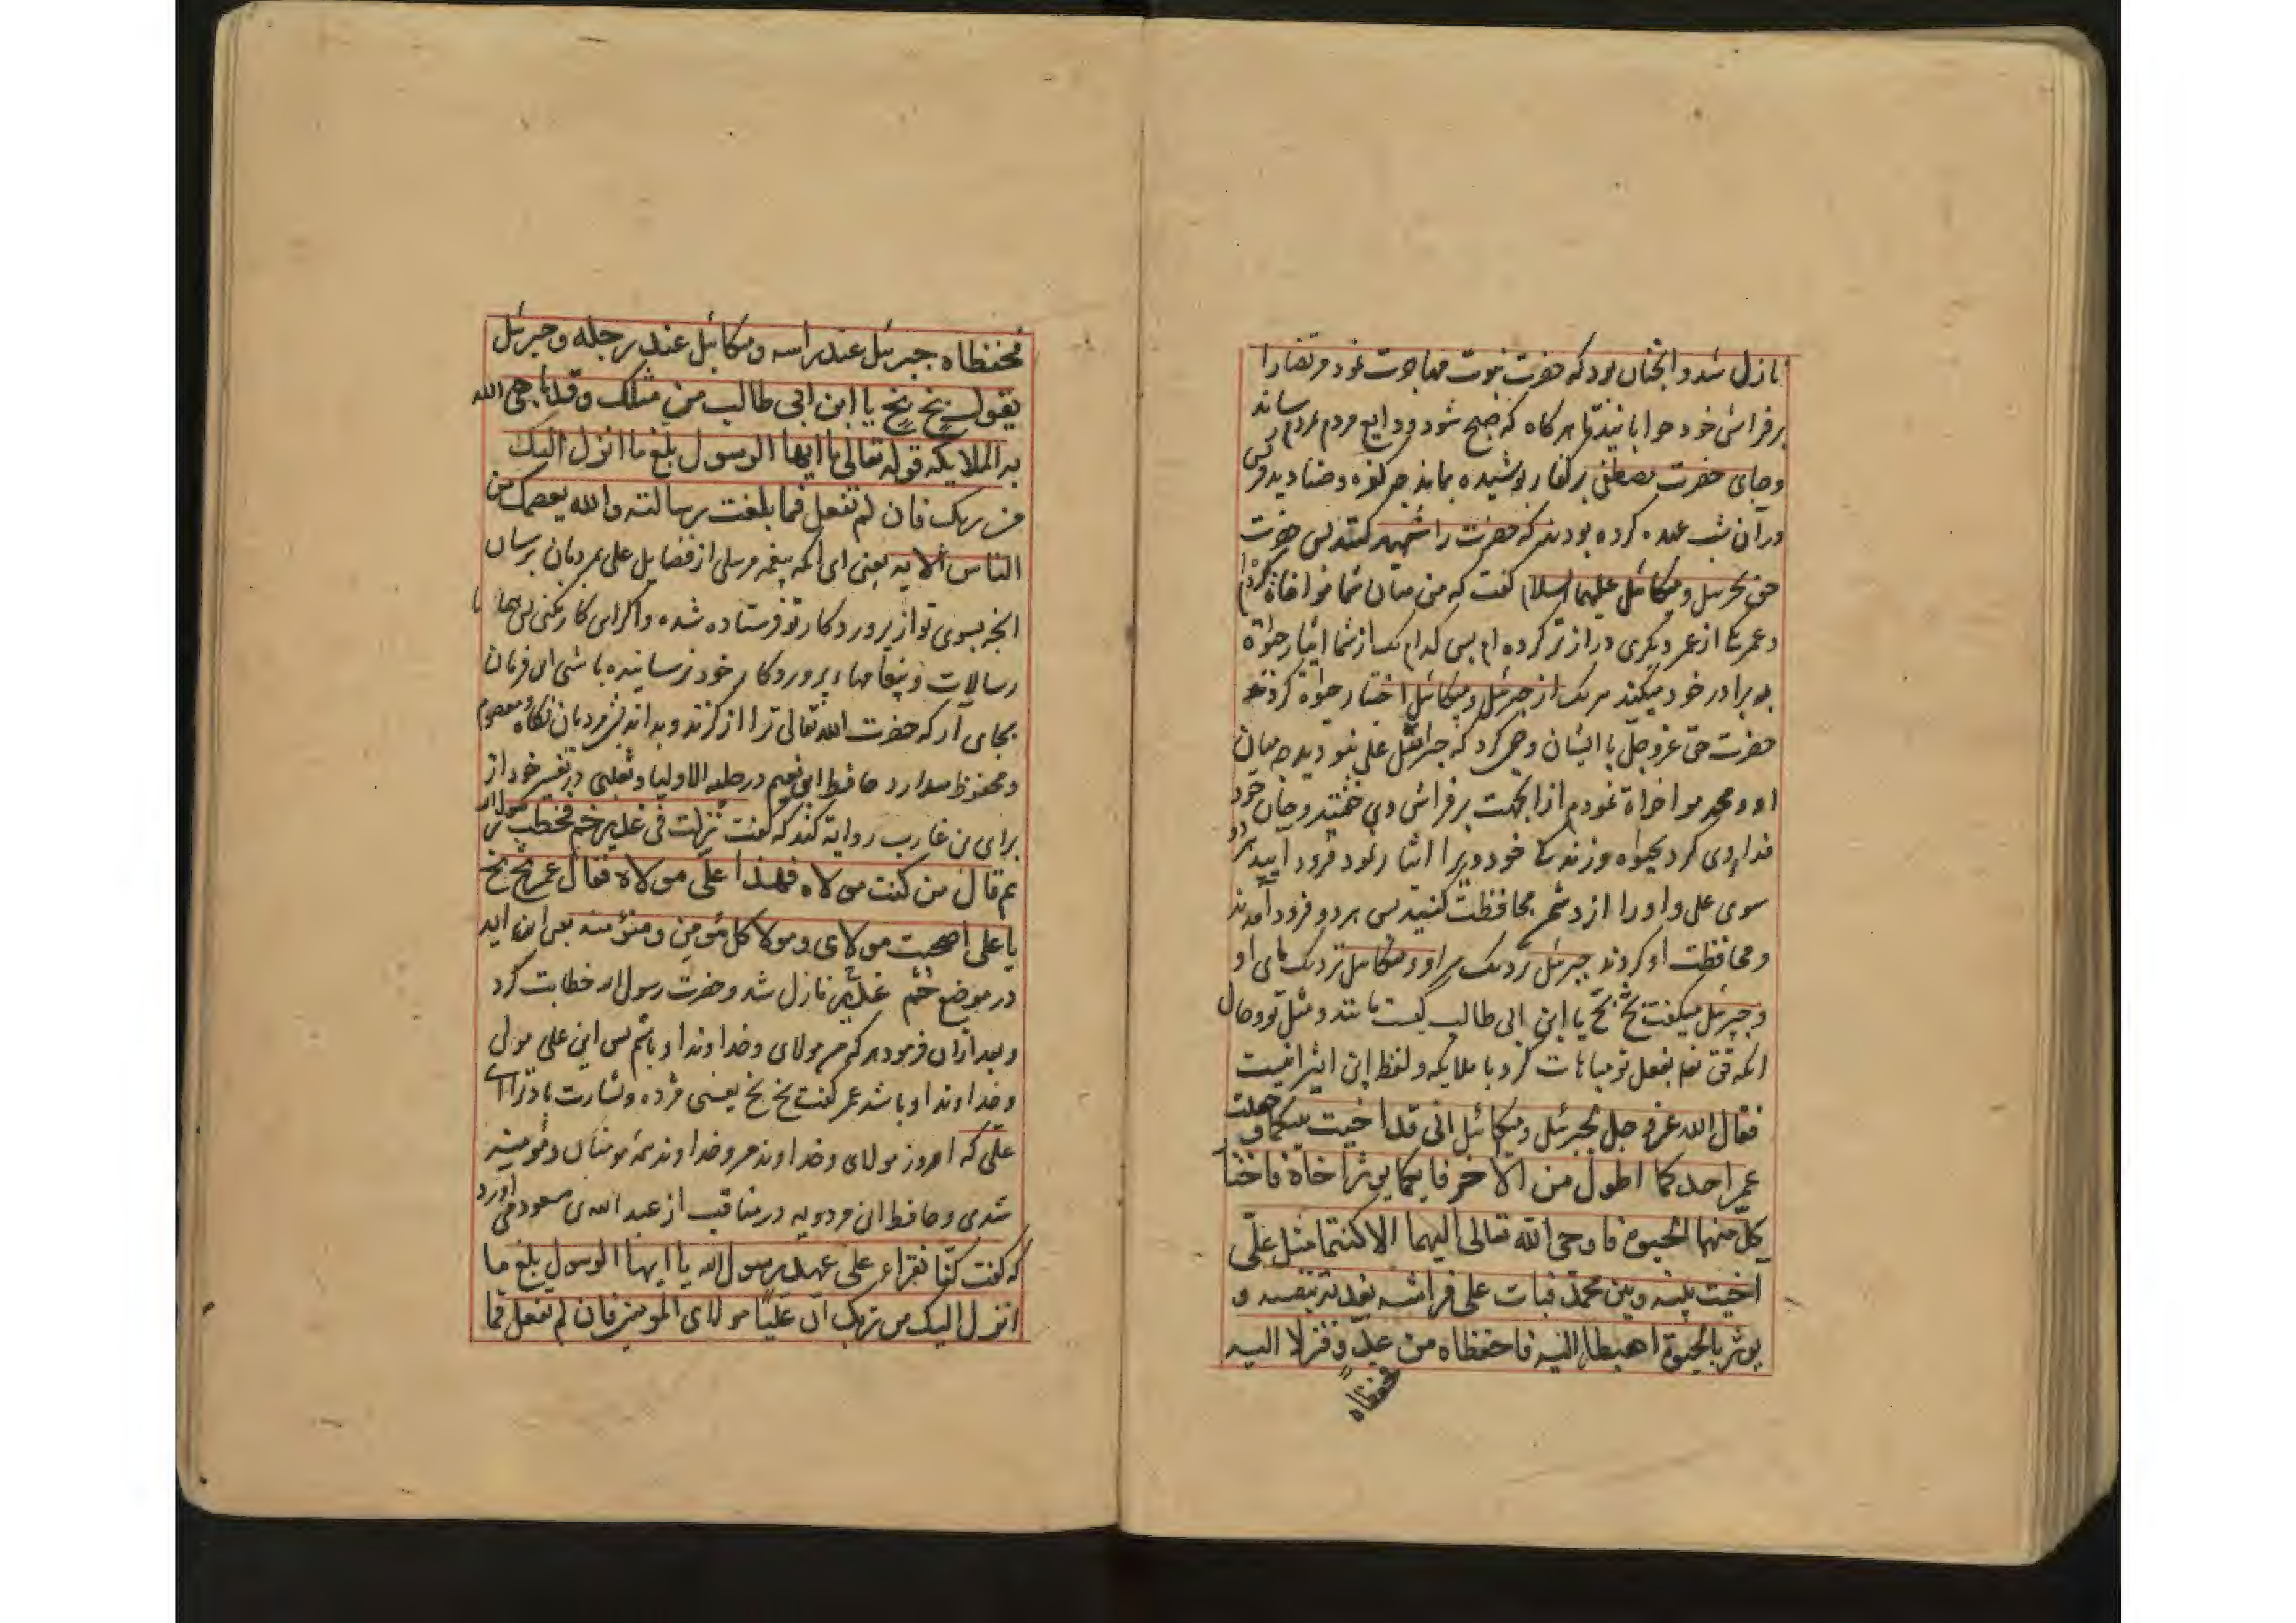 نازل شد و انچنان بود که حضرت نبوت مهاجرت نمود مرتضا را
بر فراش خود خوابانید تا هر کاه که صبح شود ودایع مردم بمردم رساند
و جای حضرت مصطفی بر کفار پوشیده بماند چه کفره و صنادید قریش
در آن شب عهد کرده بودند که حضرت را شهید کنند پس حضرت
حق بجبرئیل و میکائیل علیهما السلام کفت که من میان شما مواخاة کردم
و عمر یکی از عمر دیکری درازتر کرده ام پس کدام یک از شما ایثار حیوة
به برادر خود میکند هر یک از جبرئیل و میکائیل اختیار حیوة کردند
حضرت حق عز و جل با ایشان وحی کرد که چرا مثل علی نبودید چه میان
او و محمد مواخراة نمودم از انجهت بر فراش وی خفتید و جان خود
فدا وی کرد بحیوة و زندکی خود ویرا ایثار نمود فرود آیید هر دو
سوی علی و او را از دشمن محافظت کنید پس هر دو فرود آمدند
و محافظت او کردند جبرئیل نزدیک سر او و میکائیل نزدیک پای او
و جبرئیل میکفت بخ بخ یا ابن ابی طالب کیست مانند و مثل تو و حال
انکه حق تعالی بفعل تو مباهات کرد با ملایکه و لفظ این اثر اینست
فقال الله عز و جل لجبرئیل و میکائیل انی قد اخیت بینکما و جعلت
عمر احدکما اطول من الاخر فایکما یوثر اخاه فاختار
کل منهما الحیوة فاوحی الله تعالی الیهما الا کنتما مثل علی
اخیت بینه و بین محمد فبات علی فراشه یفدیه بنفسه و
یوثر بالحیوة اهبطا الیه فاحفظاه من عدوه فنزلا الیه
فحفظاه
فحفظاه جبرئیل عند راسه و میکائیل عند رجله و جبرئیل
یقول بخ بخ یا ابن ابی طالب من مثلک و قد باهی الله
به الملایکه قوله تعالی یا ایها الرسول بلغ ما انزل الیک
من ربک فان لم تفعل فما بلغت رسالته و الله یعصمک من
الناس الایه یعنی ای انکه پیغمبر مرسلی از فضایل علی بمردمان برسان
انچه بسوی تو از پروردکار تو فرستاده شده و اکر این کار نکنی پس بهمه
رسالات و پیغامهاء پروردکار خود نرسانیده باشی این فرمان
بجای آر که حضرت الله تعالی ترا از کزند و بد اندیش مردمان نکاه و معصوم
و محفوظ میدارد حافظ ابی نعیم در حلیه الاولیا و ثعلبی در تفسیر خود از
برای بن عازب روایة کند که کفت نزلت فی غدیر خم فخطب رسول الله
ثم قال من کنت مولاه فهذا علی مولاه فقال عمر بخ بخ
یا علی اصبحت مولای و مولا کل مؤمن و مؤمنه یعنی این ایه
در موضع خم غدیر نازل شد و حضرت رسول الله خطابت کرد
و بعد ازان فرمود هر که من مولای و خداوند او باشم پس این علی مولی
و خداوند او باشد عمر کفت بخ بخ یعنی مژده و بشارت باد ترا ای
علی که امروز مولای و خداوند من و خداوند همه مومنان و مومنه
شدی و حافظ ابن مردویه در مناقب از عبد الله بن مسعود می آورد
که کفت کنا نقراء علی عهد رسول الله یا ایها الرسول بلغ ما
انزل الیک من ربک ان علیا مولای المومنین فان لم تفعل فما